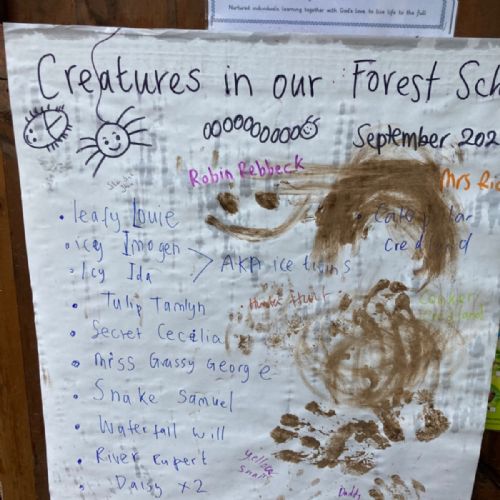 Nurtured individuals, learning together with God's love to live life to the full
Creatures in our Forest Sch
September 202
Robin Rebbeck
Mrs Ri
• leafy Louie
• icey Imogen
• Icy Ida
AKA ice twins
• Tulip Tamlyn
• Secret Cecelia
• Miss Grassy George
• Snake Samuel
• Waterfall Will
• River Rupert
• Daisy x2
Hunt
yellow